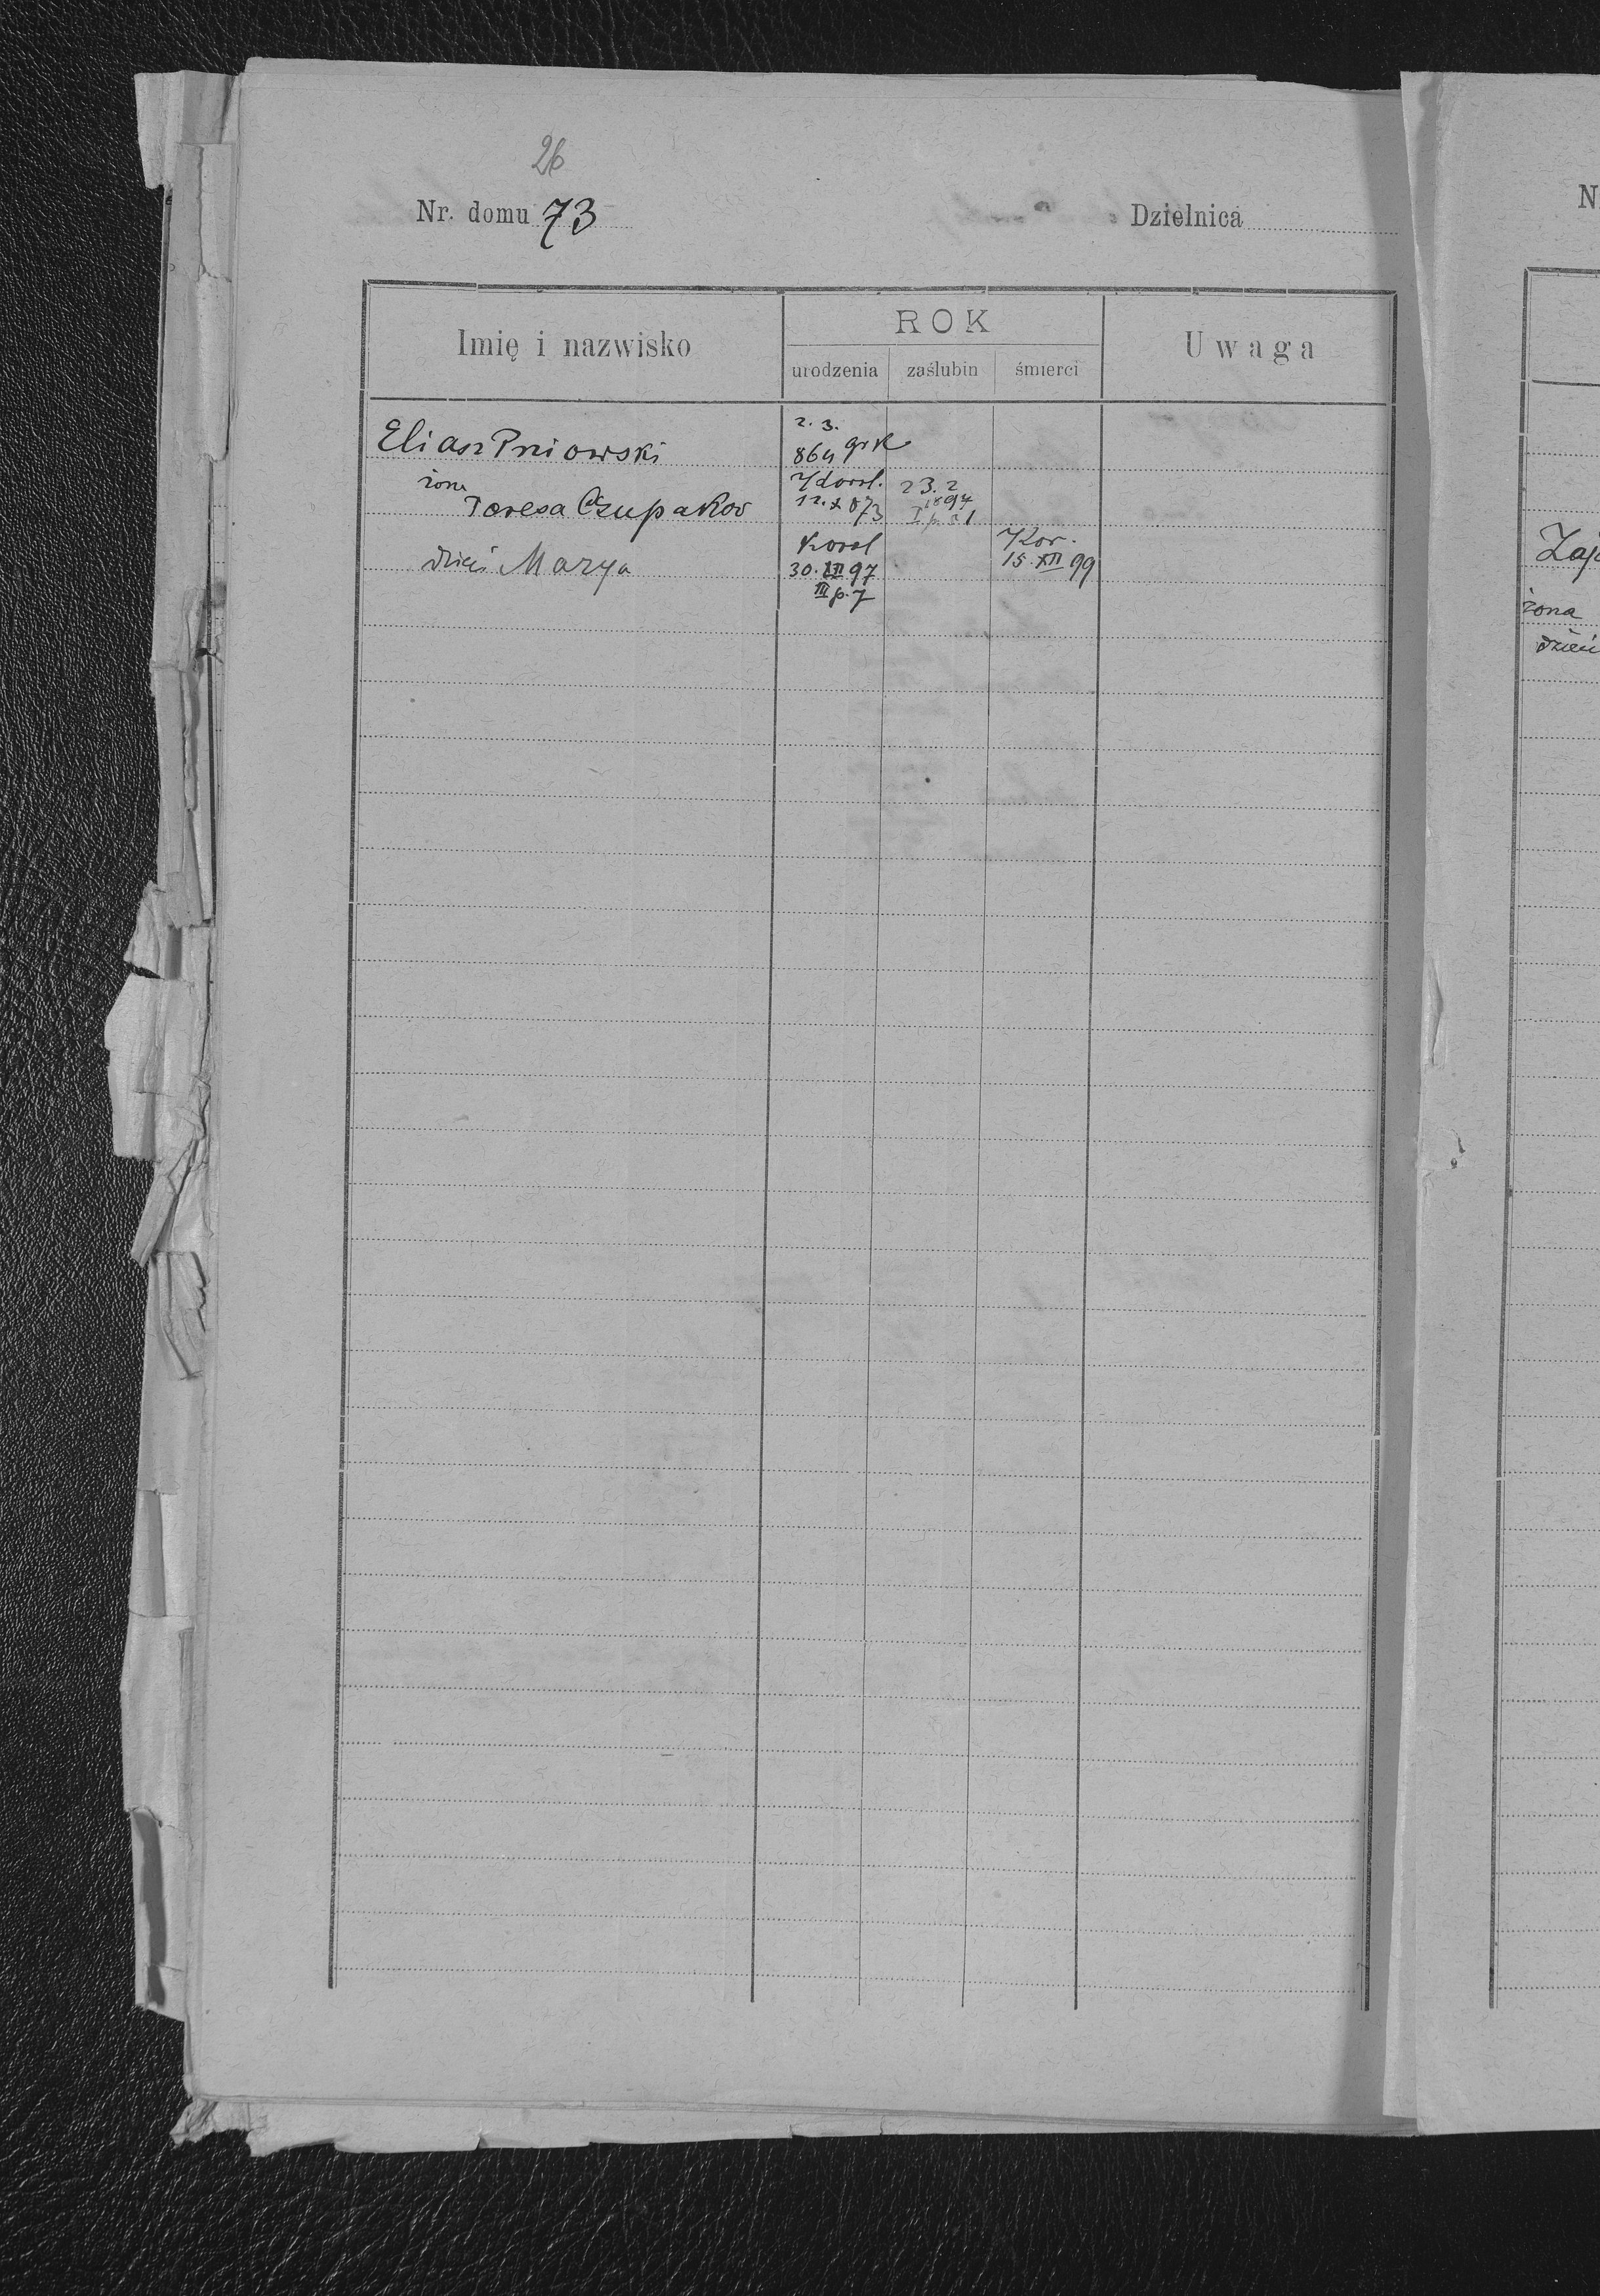 26
Nr. domu 73
Dzielnica
Imię i nazwisko
ROK
urodzenia
zaślubin
śmierci
Uwaga
Eliasz Pniowski
2. 3.
864 grk
żona Teresa Czupakow
12. X 873
23. 2
1894
I p. 21
dzieci Marya
Korol
30. III 97
III p. 7
Kor.
15. XII 99
N
Zaj
żona
dzieci